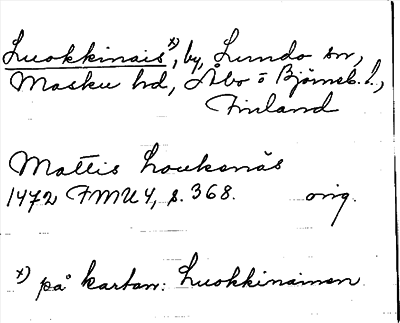 Luokkinais x), by, Lundo sn,
Masku hd, Åbo o Björneb. l.,
Finland
Mattis Loukenäs
1472 FMU 4, s. 368. orig.
x) på kartan: Luokkinainen